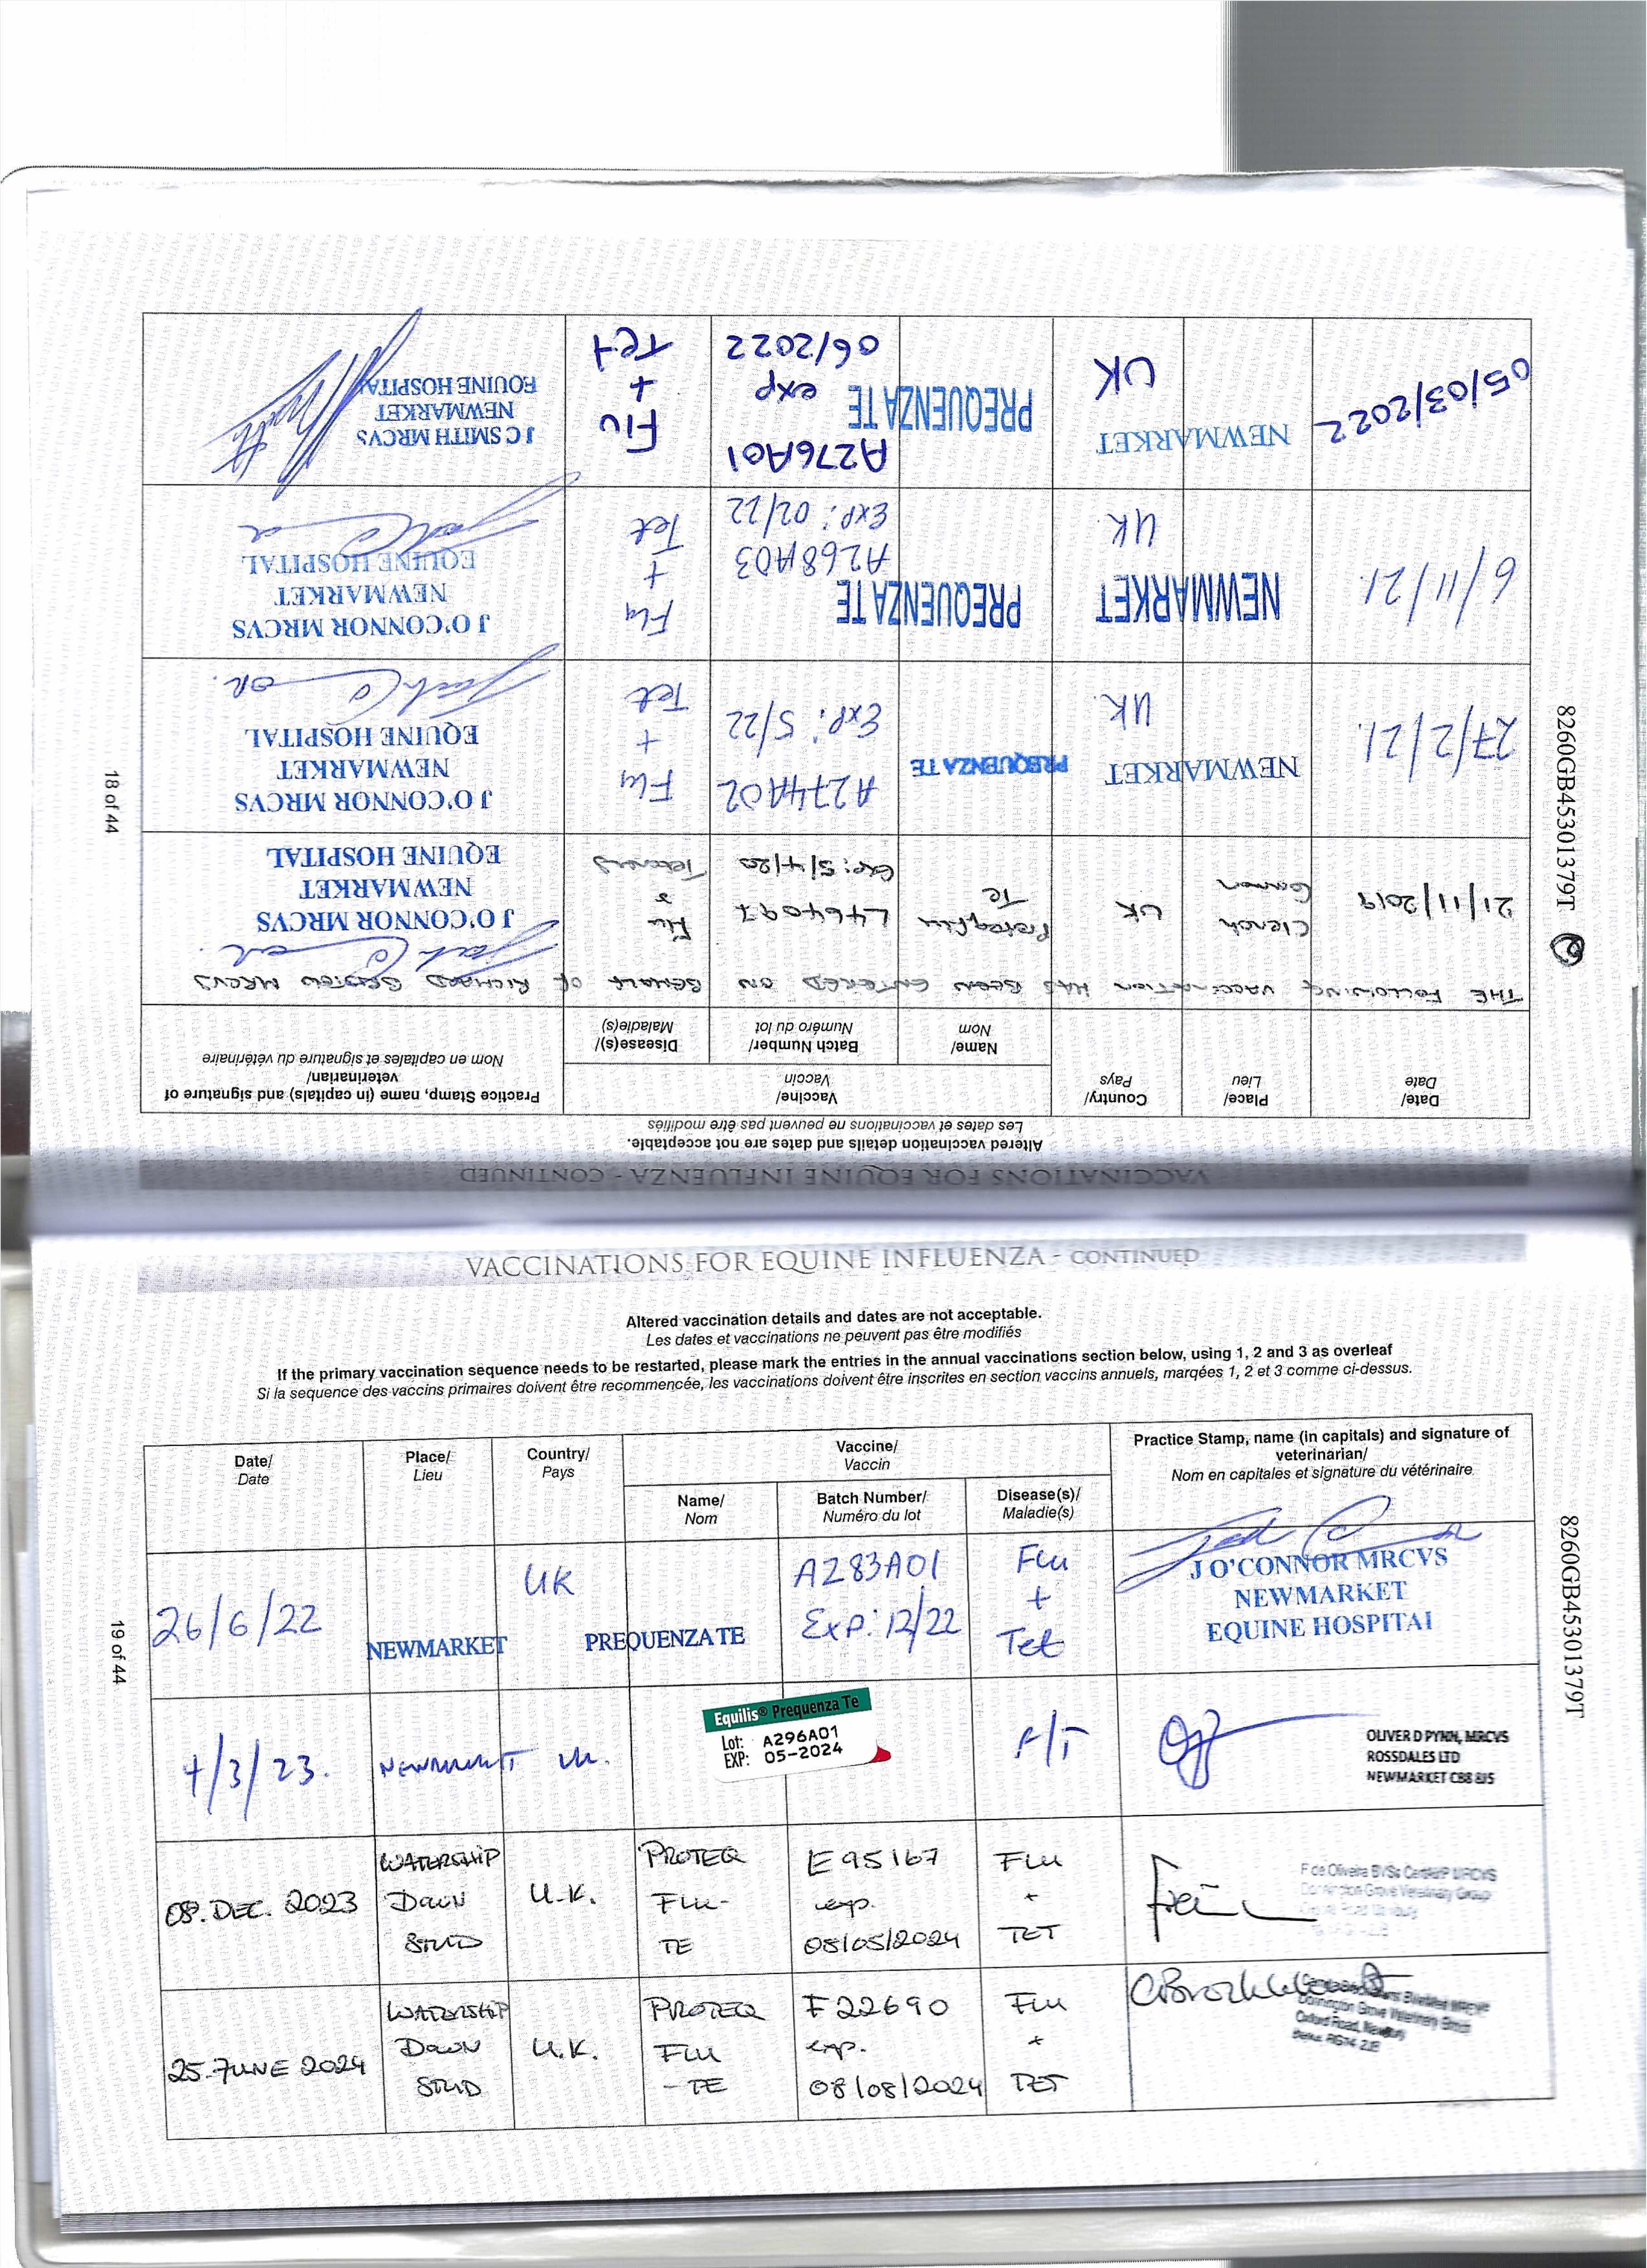 VACCINATIONS FOR EQUINE INFLUENZA - CONTINUED
Altered vaccination details and dates are not acceptable.
Les dates et vaccinations ne peuvent pas être modifiés
Date/
Date
Place/
Lieu
Country/
Pays
Vaccine/
Vaccin
Name/
Nom
Batch Number/
Numéro du lot
Disease(s)/
Maladie(s)
Practice Stamp, name (in capitals) and signature of
veterinarian/
Nom en capitales et signature du vétérinaire
THE FOLLOWING VACCINATION HAS BEEN ENTERED ON BEHALF OF RICHARD MRCVS
21/11/2019
Clench
Common
UK
Proteqflu
Te
L464097
Exp: 5/4/20
Flu
&
Tetanus
J O'CONNOR MRCVS
NEWMARKET
EQUINE HOSPITAL
27/2/21.
NEWMARKET
UK.
PREQUENZA TE
A274A02
Exp: 5/22
Flu
+
Tet
J O'CONNOR MRCVS
NEWMARKET
EQUINE HOSPITAL
6/11/21.
NEWMARKET
UK.
PREQUENZA TE
A268A03
Exp: 02/22
Flu
+
Tet
J O'CONNOR MRCVS
NEWMARKET
EQUINE HOSPITAL
05/03/2022
NEWMARKET
UK
PREQUENZA TE
A276A01
exp
06/2022
Flu
+
Tet
J C SMITH MRCVS
NEWMARKET
EQUINE HOSPITAL
18 of 44
8260GB45301379T
VACCINATIONS FOR EQUINE INFLUENZA - CONTINUED
Altered vaccination details and dates are not acceptable.
Les dates et vaccinations ne peuvent pas être modifiés
If the primary vaccination sequence needs to be restarted, please mark the entries in the annual vaccinations section below, using 1, 2 and 3 as overleaf
Si la sequence des vaccins primaires doivent être recommencée, les vaccinations doivent être inscrites en section vaccins annuels, marqées 1, 2 et 3 comme ci-dessus.
Date/
Date
Place/
Lieu
Country/
Pays
Vaccine/
Vaccin
Name/
Nom
Batch Number/
Numéro du lot
Disease(s)/
Maladie(s)
Practice Stamp, name (in capitals) and signature of
veterinarian/
Nom en capitales et signature du vétérinaire
26/6/22
NEWMARKET
UK
PREQUENZA TE
A283A01
Exp: 12/22
Flu
+
Tet
J O'CONNOR MRCVS
NEWMARKET
EQUINE HOSPITAL
4/3/23.
NEWMARKET
UK.
Equilis® Prequenza Te
Lot: A296A01
EXP: 05-2024
F/T
OLIVER D PYNN, MRCVS
ROSSDALES LTD
NEWMARKET CB8 8JS
08. DEC. 2023
WATERSHIP
DOWN
STUD
U.K.
PROTEQ
FLU-
TE
E95167
exp.
08/05/2024
FLU
+
TET
F de Oliveira BVSc CertAVP MRCVS
Donnington Grove Veterinary Group
25 JUNE 2024
WATERSHIP
DOWN
STUD
U.K.
PROTEQ
FLU
- TE
F22690
exp.
08/08/2024
FLU
+
TET
Donnington Grove Veterinary Group
Oxford Road, Newbury
Berks. RG14 2JB
19 of 44
8260GB45301379T